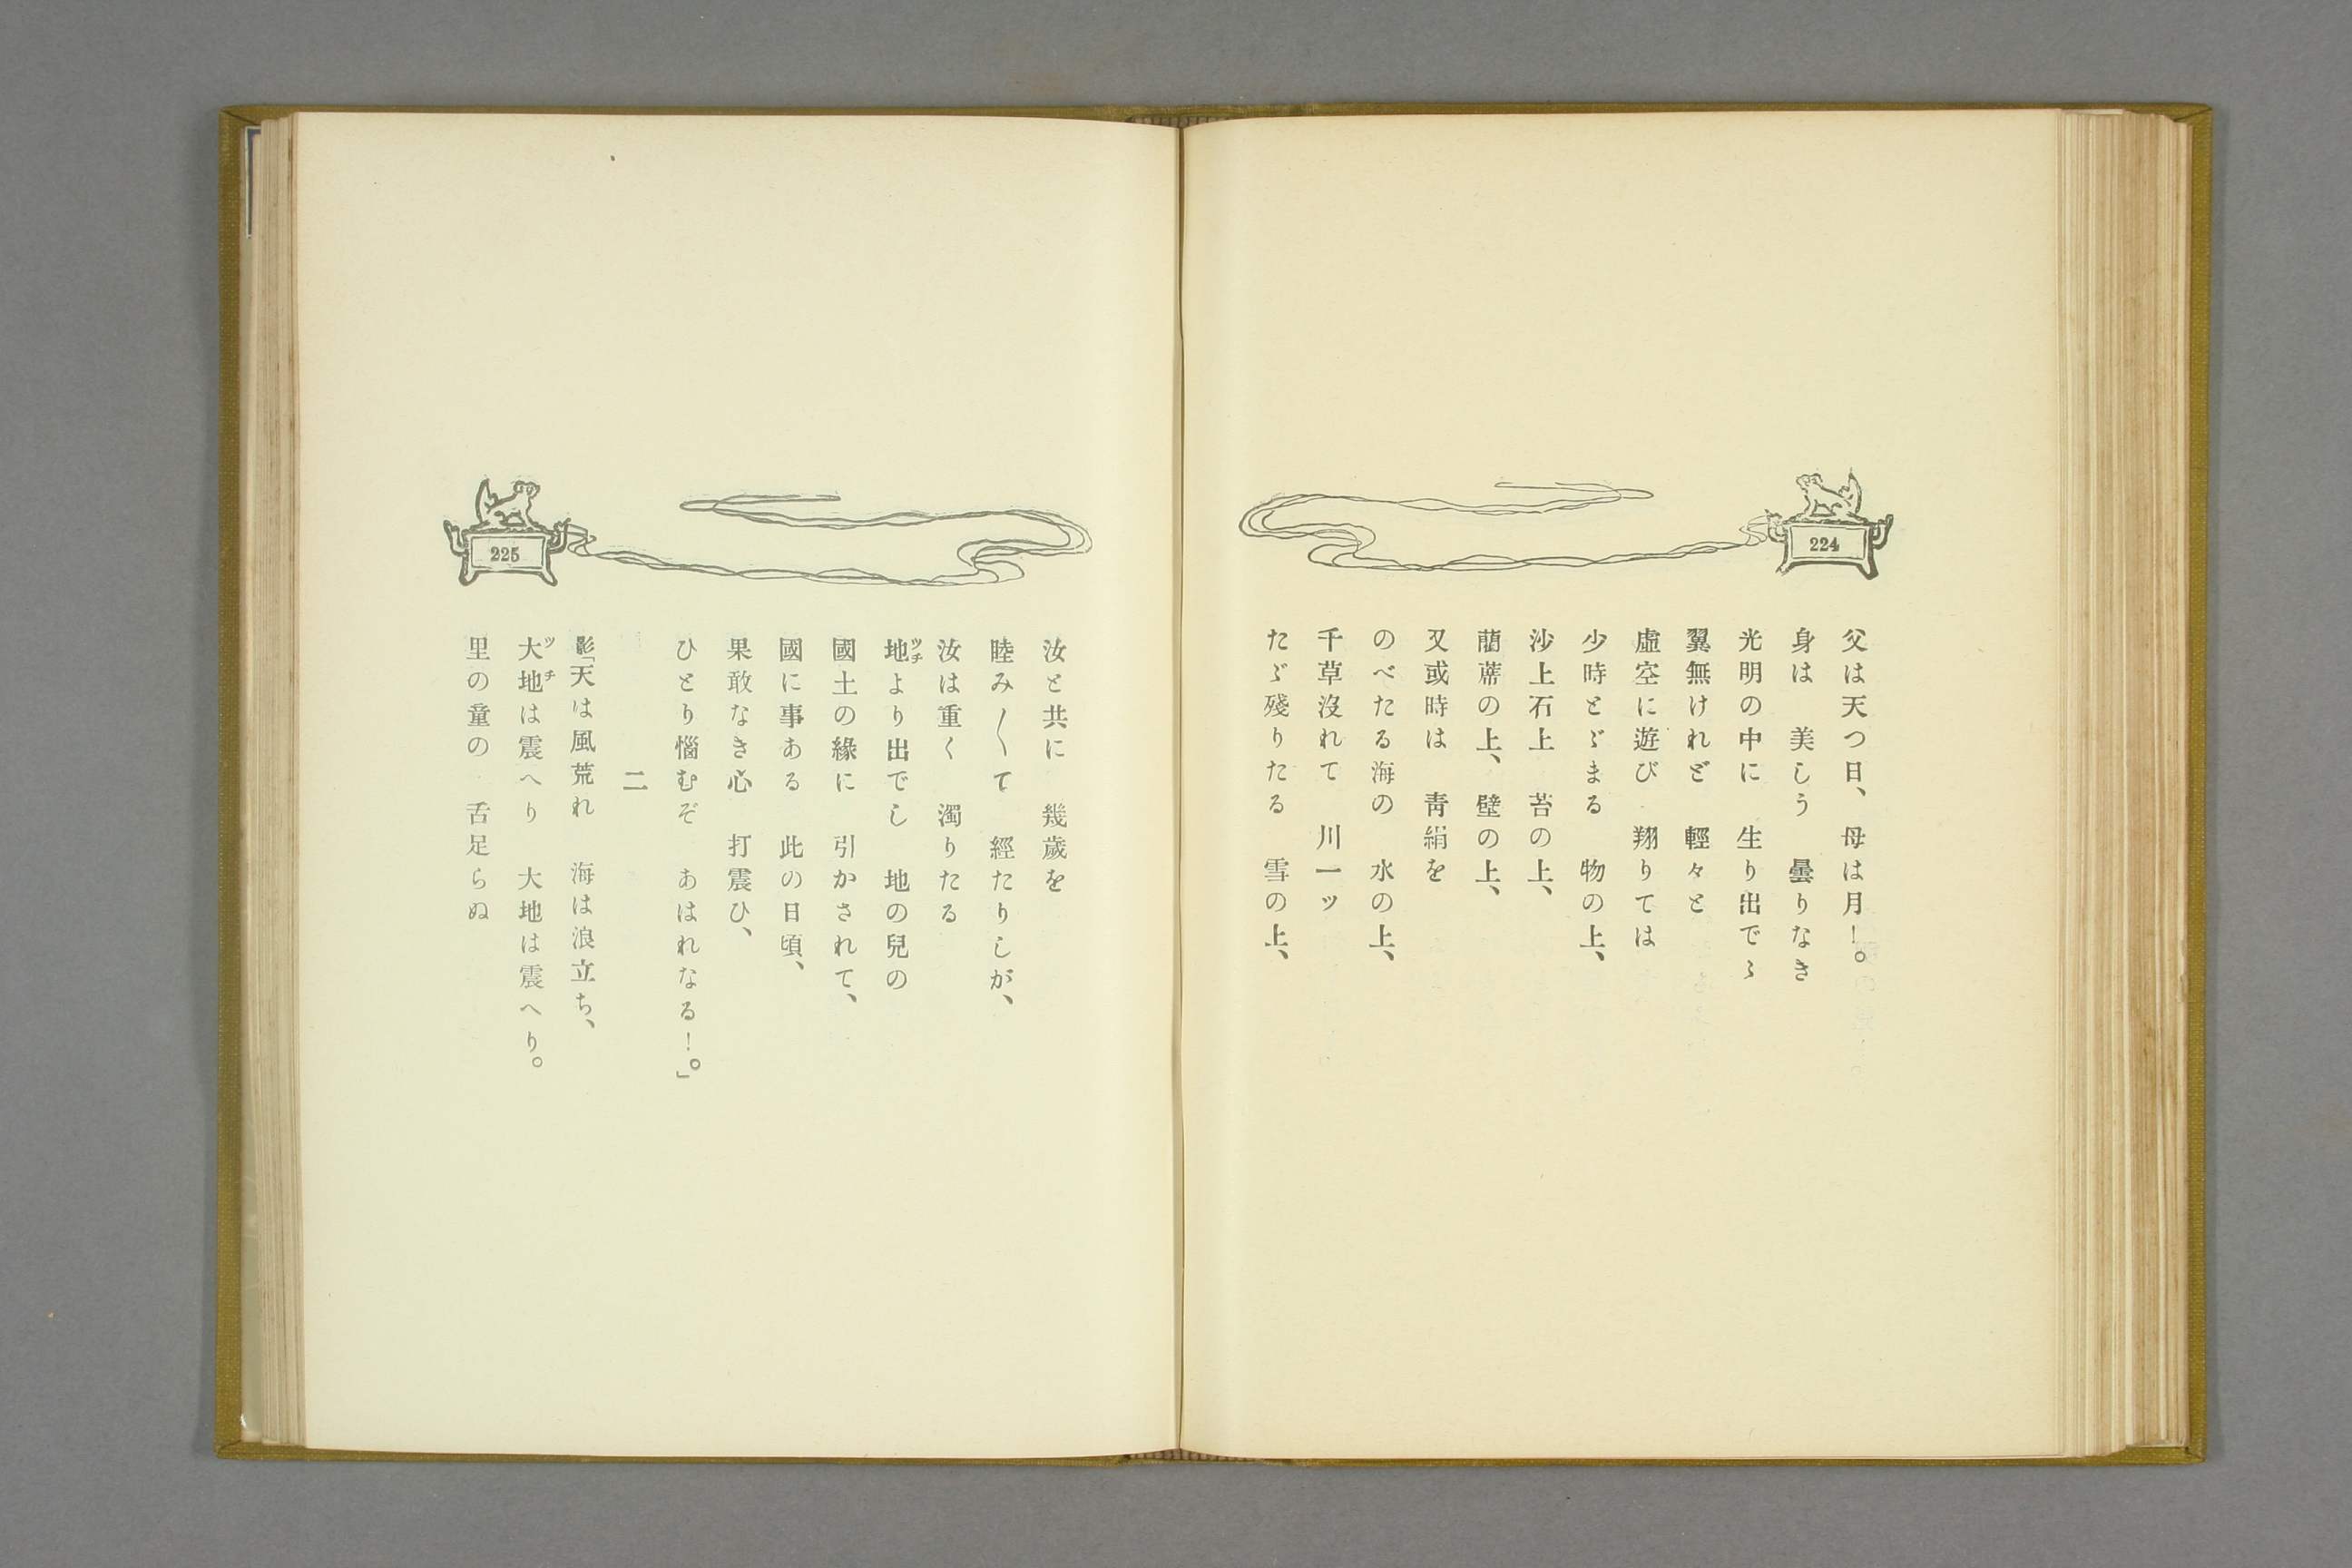 224
父は天つ日、母は月!。
身は　美しう　曇りなき
光明の中に　生り出でゝ
翼無けれど　輕々と
虛空に遊び　翔りては
少時とゞまる　物の上、
沙上石上　苔の上、
藺蓆の上、壁の上、
又或時は　靑絹を
のべたる海の　水の上、
千草沒れて　川一ッ
たゞ殘りたる　雪の上、
225
汝と共に　幾歲を
睦み〱て　經たりしが、
汝は重く　濁りたる
地ツチより出でし　地の兒の
國土の緣に　引かされて、
國に事ある　此の日頃、
果敢なき心　打震ひ、
ひとり惱むぞ　あはれなる!。」
二
影「天は風荒れ　海は浪立ち、
大地ツチは震へり　大地は震へり。
里の童の　舌足らぬ